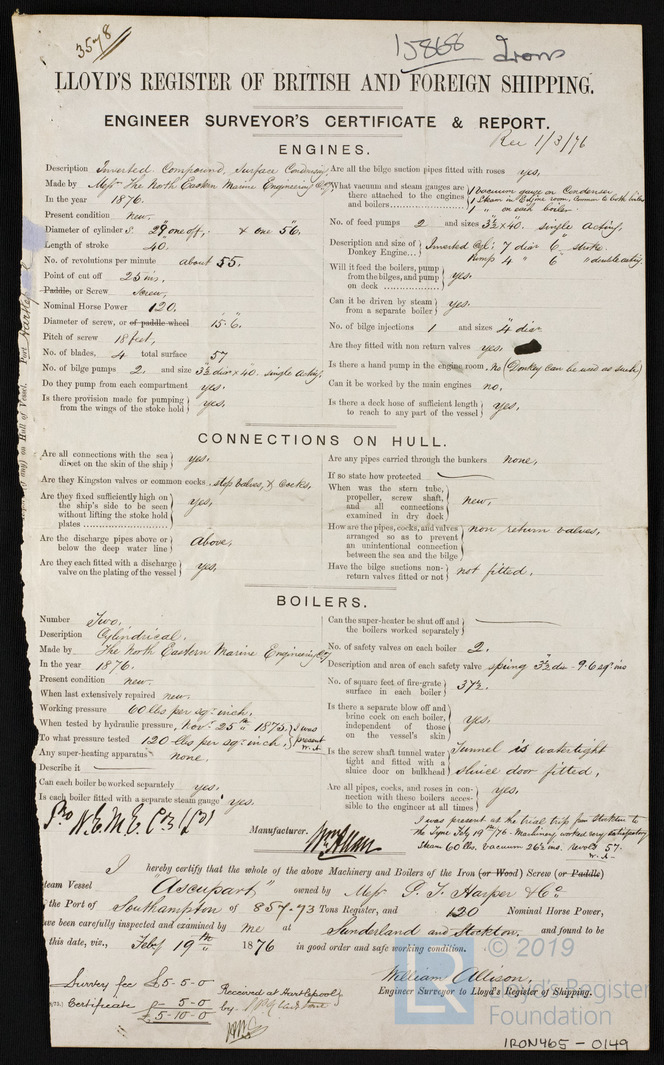 3578
15868 Iron
LLOYD'S REGISTER OF BRITISH AND FOREIGN SHIPPING.
ENGINEER SURVEYOR'S CERTIFICATE & REPORT.
Rec 1/3/76
ENGINES.
Description Inverted Compound, Surface Condensing
Made by Messrs The North Eastern Marine Engineering Coy
In the year 1876.
Present condition new.
Diameter of cylinders. 29" one off, & one 56".
Length of stroke 40.
No. of revolutions per minute about 55.
Point of cut off 25 ins,
Paddle, or Screw Screw,
Nominal Horse Power 120.
Diameter of screw, or of paddle wheel 15.6.
Pitch of screw 18 feet,
No. of blades, 4 total surface 57
No. of bilge pumps 2. and size 3½ diar x 40. single acting,
Do they pump from each compartment yes.
Is there provision made for pumping from the wings of the stoke hold } yes,
Are all the bilge suction pipes fitted with roses yes,
What vacuum and steam gauges are there attached to the engines and boilers
1 Vacuum gauge on Condenser
1 Steam in Engine room, common to both boilers
1 " on each boiler
No. of feed pumps 2 and sizes 3½ x 40. single acting,
Description and size of Donkey Engine... } Inverted Cyl: 7 diar 6" stroke.
Pump 4" 6" double acting.
Will it feed the boilers, pump from the bilges, and pump on deck } yes.
Can it be driven by steam from a separate boiler } yes.
No. of bilge injections 1 and sizes 4 diar
Are they fitted with non return valves yes.
Is there a hand pump in the engine room, no (Donkey can be used as such)
Can it be worked by the main engines no,
Is there a deck hose of sufficient length to reach to any part of the vessel } yes,
CONNECTIONS ON HULL.
Are all connections with the sea direct on the skin of the ship } yes.
Are they Kingston valves or common cocks stop valves, & Cocks,
Are they fixed sufficiently high on the ship's side to be seen without lifting the stoke hold plates } yes,
Are the discharge pipes above or below the deep water line } Above,
Are they each fitted with a discharge valve on the plating of the vessel } yes,
Are any pipes carried through the bunkers none,
If so state how protected
When was the stern tube, propeller, screw shaft, and all connections examined in dry dock } new,
How are the pipes, cocks, and valves arranged so as to prevent an unintentional connection between the sea and the bilge } non return valves,
Have the bilge suctions non-return valves fitted or not } not fitted,
BOILERS.
Number Two,
Description Cylindrical.
Made by The North Eastern Marine Engineering Coy
In the year 1876.
Present condition new.
When last extensively repaired new.
Working pressure 60 lbs per sqr inch,
When tested by hydraulic pressure, Novr 25th 1875. } I was
To what pressure tested 120 lbs per sqr inch, } present W.A.
Any super-heating apparatus none.
Describe it
Can each boiler be worked separately yes.
Is each boiler fitted with a separate steam gauge yes.
Can the super-heater be shut off and the boilers worked separately }
No. of safety valves on each boiler 2.
Description and area of each safety valve spring 3½ dia - 9.6 sqr ins
No. of square feet of fire-grate surface in each boiler } 37½.
Is there a separate blow off and brine cock on each boiler, independent of those on the vessel's skin } yes,
Is the screw shaft tunnel water tight and fitted with a sluice door on bulkhead } Tunnel is watertight
sluice door fitted,
Are all pipes, cocks, and roses in connection with these boilers accessible to the engineer at all times } yes
I was present at the trial trip from Stockton to
the Tyne Feby 19th/76 - Machinery worked very satisfactory
Steam 60 lbs, vacuum 26½ ins. revols 57.
W.A.
Pro N.E.M.E. Coy Ld
Manufacturer. Wm Allan
I hereby certify that the whole of the above Machinery and Boilers of the Iron (or Wood) Screw (or Paddle)
team Vessel "Ascupart" owned by Messrs G. T. Harper & Co
the Port of Southampton of 857.73 Tons Register, and 120 Nominal Horse Power,
ave been carefully inspected and examined by me at Sunderland and Stockton. and found to be
this date, viz., Feby 19th 1876 in good order and safe working condition.
William Allison,
Engineer Surveyor to Lloyd's Register of Shipping.
Survey fee £5-5-0
Certificate 0-5-0
£5-10-0
Received at Hartlepool
by
© 2019
LR Lloyd's Register
Foundation
IRON465-0149